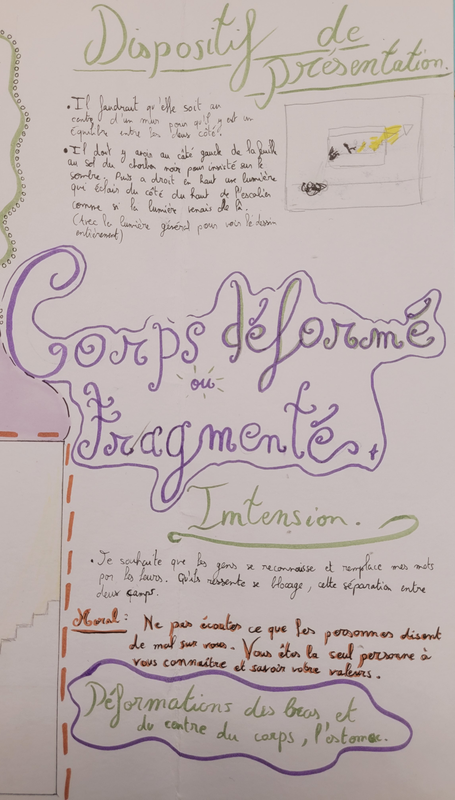 Dispositif de
présentation.
• Il faudrait qu'elle soit au
centre d'un mur pour qu'il y est un
équilibre entre les deux côtés.
• Il doit y avoir au côté gauche de la feuille
au sol du charbon noir pour insisté sur le
sombre. Puis a droit en haut une lumière
qui éclais du côté du haut de l'escalier
comme si la lumière venais de là.
(Avec la lumière général pour voir le dessin
entièrement)
Corps déformé
ou
Fragmentés
Intension.
• Je souhaite que les gens se reconnaisse et remplace mes mots
par les leurs. Qu'ils ressente se blocage, cette séparation entre
deux camps.
Moral : Ne pas écouter ce que les personnes disent
de mal sur vous. Vous êtes la seul personne à
vous connaître et savoir votre valeurs.
Déformations des bras et
du centre du corps, l'estomac.